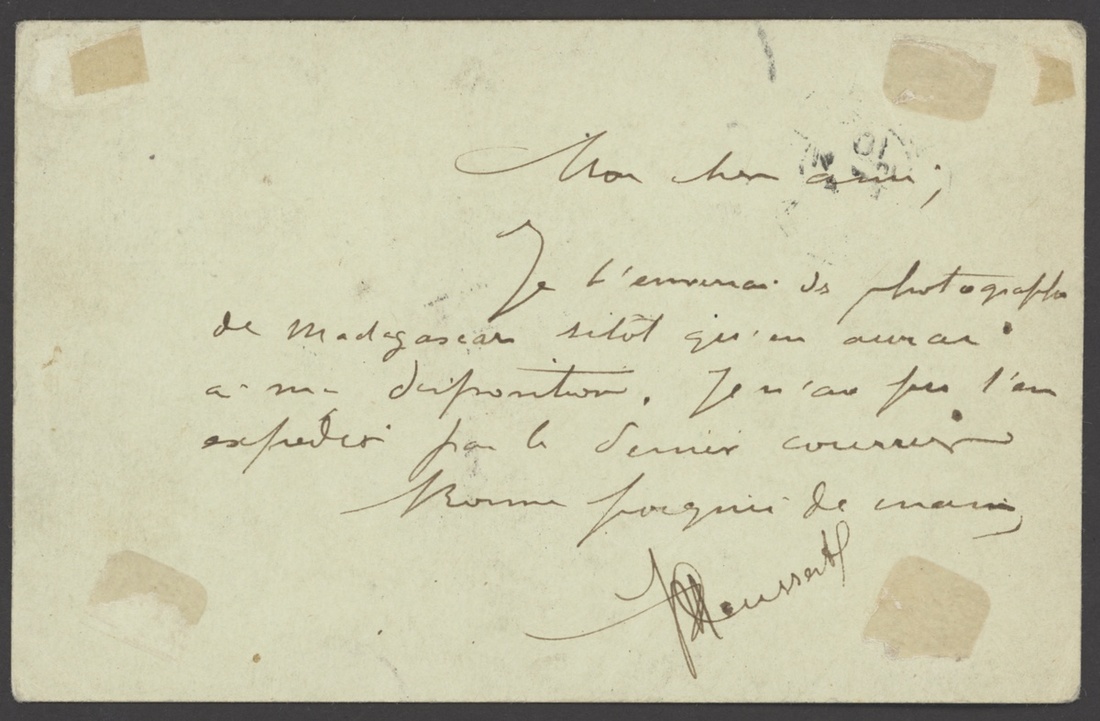 Mon cher ami,
Je t'enverrai des photographies
de Madagascar sitôt qu'en aurai
à ma disposition. Je n'ai pu t'en
expédier par le dernier courrier
Bonne poignée de main,